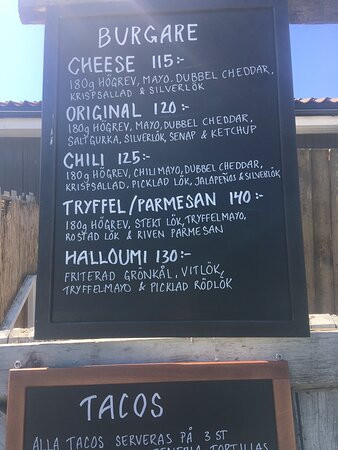 BURGARE
CHEESE 115:-
180g HÖGREV, MAYO. DUBBEL CHEDDAR,
KRISPSALLAD & SILVERLÖK
ORIGINAL 120:-
180g HÖGREV, MAYO, DUBBEL CHEDDAR,
SALTGURKA, SILVERLÖK, SENAP & KETCHUP
CHILI 125:-
180g HÖGREV, CHILIMAYO, DUBBEL CHEDDAR,
KRISPSALLAD, PICKLAD LÖK, JALAPEÑOS & SILVERLÖK
TRYFFEL/PARMESAN 140:-
180g HÖGREV, STEKT LÖK, TRYFFELMAYO,
ROSTAD LÖK & RIVEN PARMESAN
HALLOUMI 130:-
FRITERAD GRÖNKÅL, VITLÖK,
TRYFFELMAYO & PICKLAD RÖDLÖK
TACOS
ALLA TACOS SERVERAS PÅ 3 ST
TORTILLAS